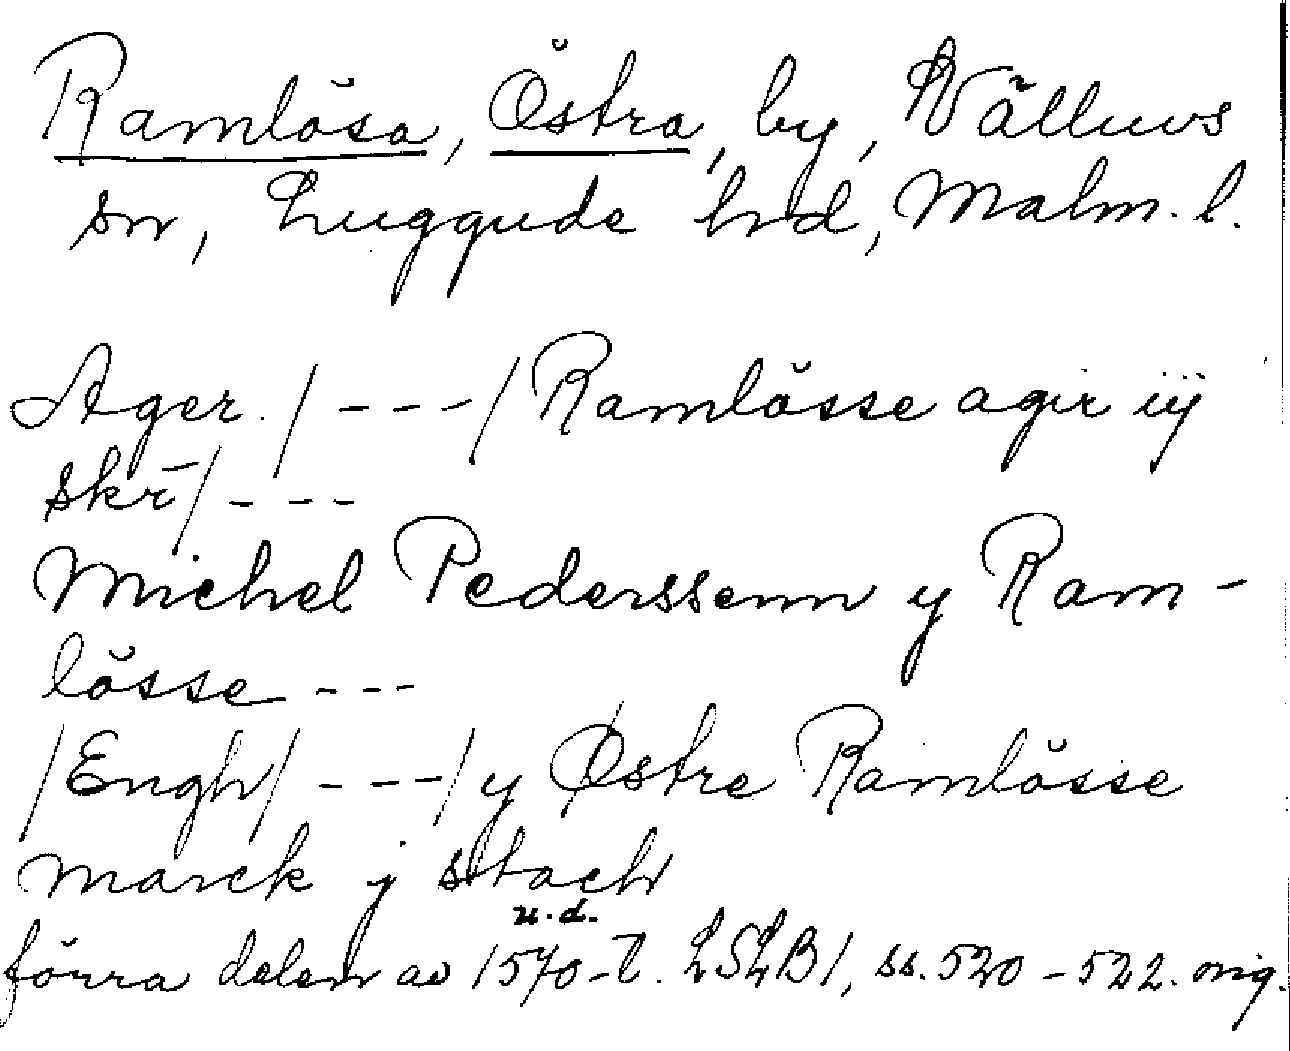 Ramlösa, Östra, by, Välluvs
sn, Luggude hrd, Malm. l.
Ager. / - - - / Ramlösse agir iij
skr̄ / - - -
Michel Pederssenn y Ram-
lösse - - -
/Engh/ - - - / y Østre Ramlösse
marck j stach
u. d.
förra delen av 1570-t. LSLB1, ss. 520-522. orig.